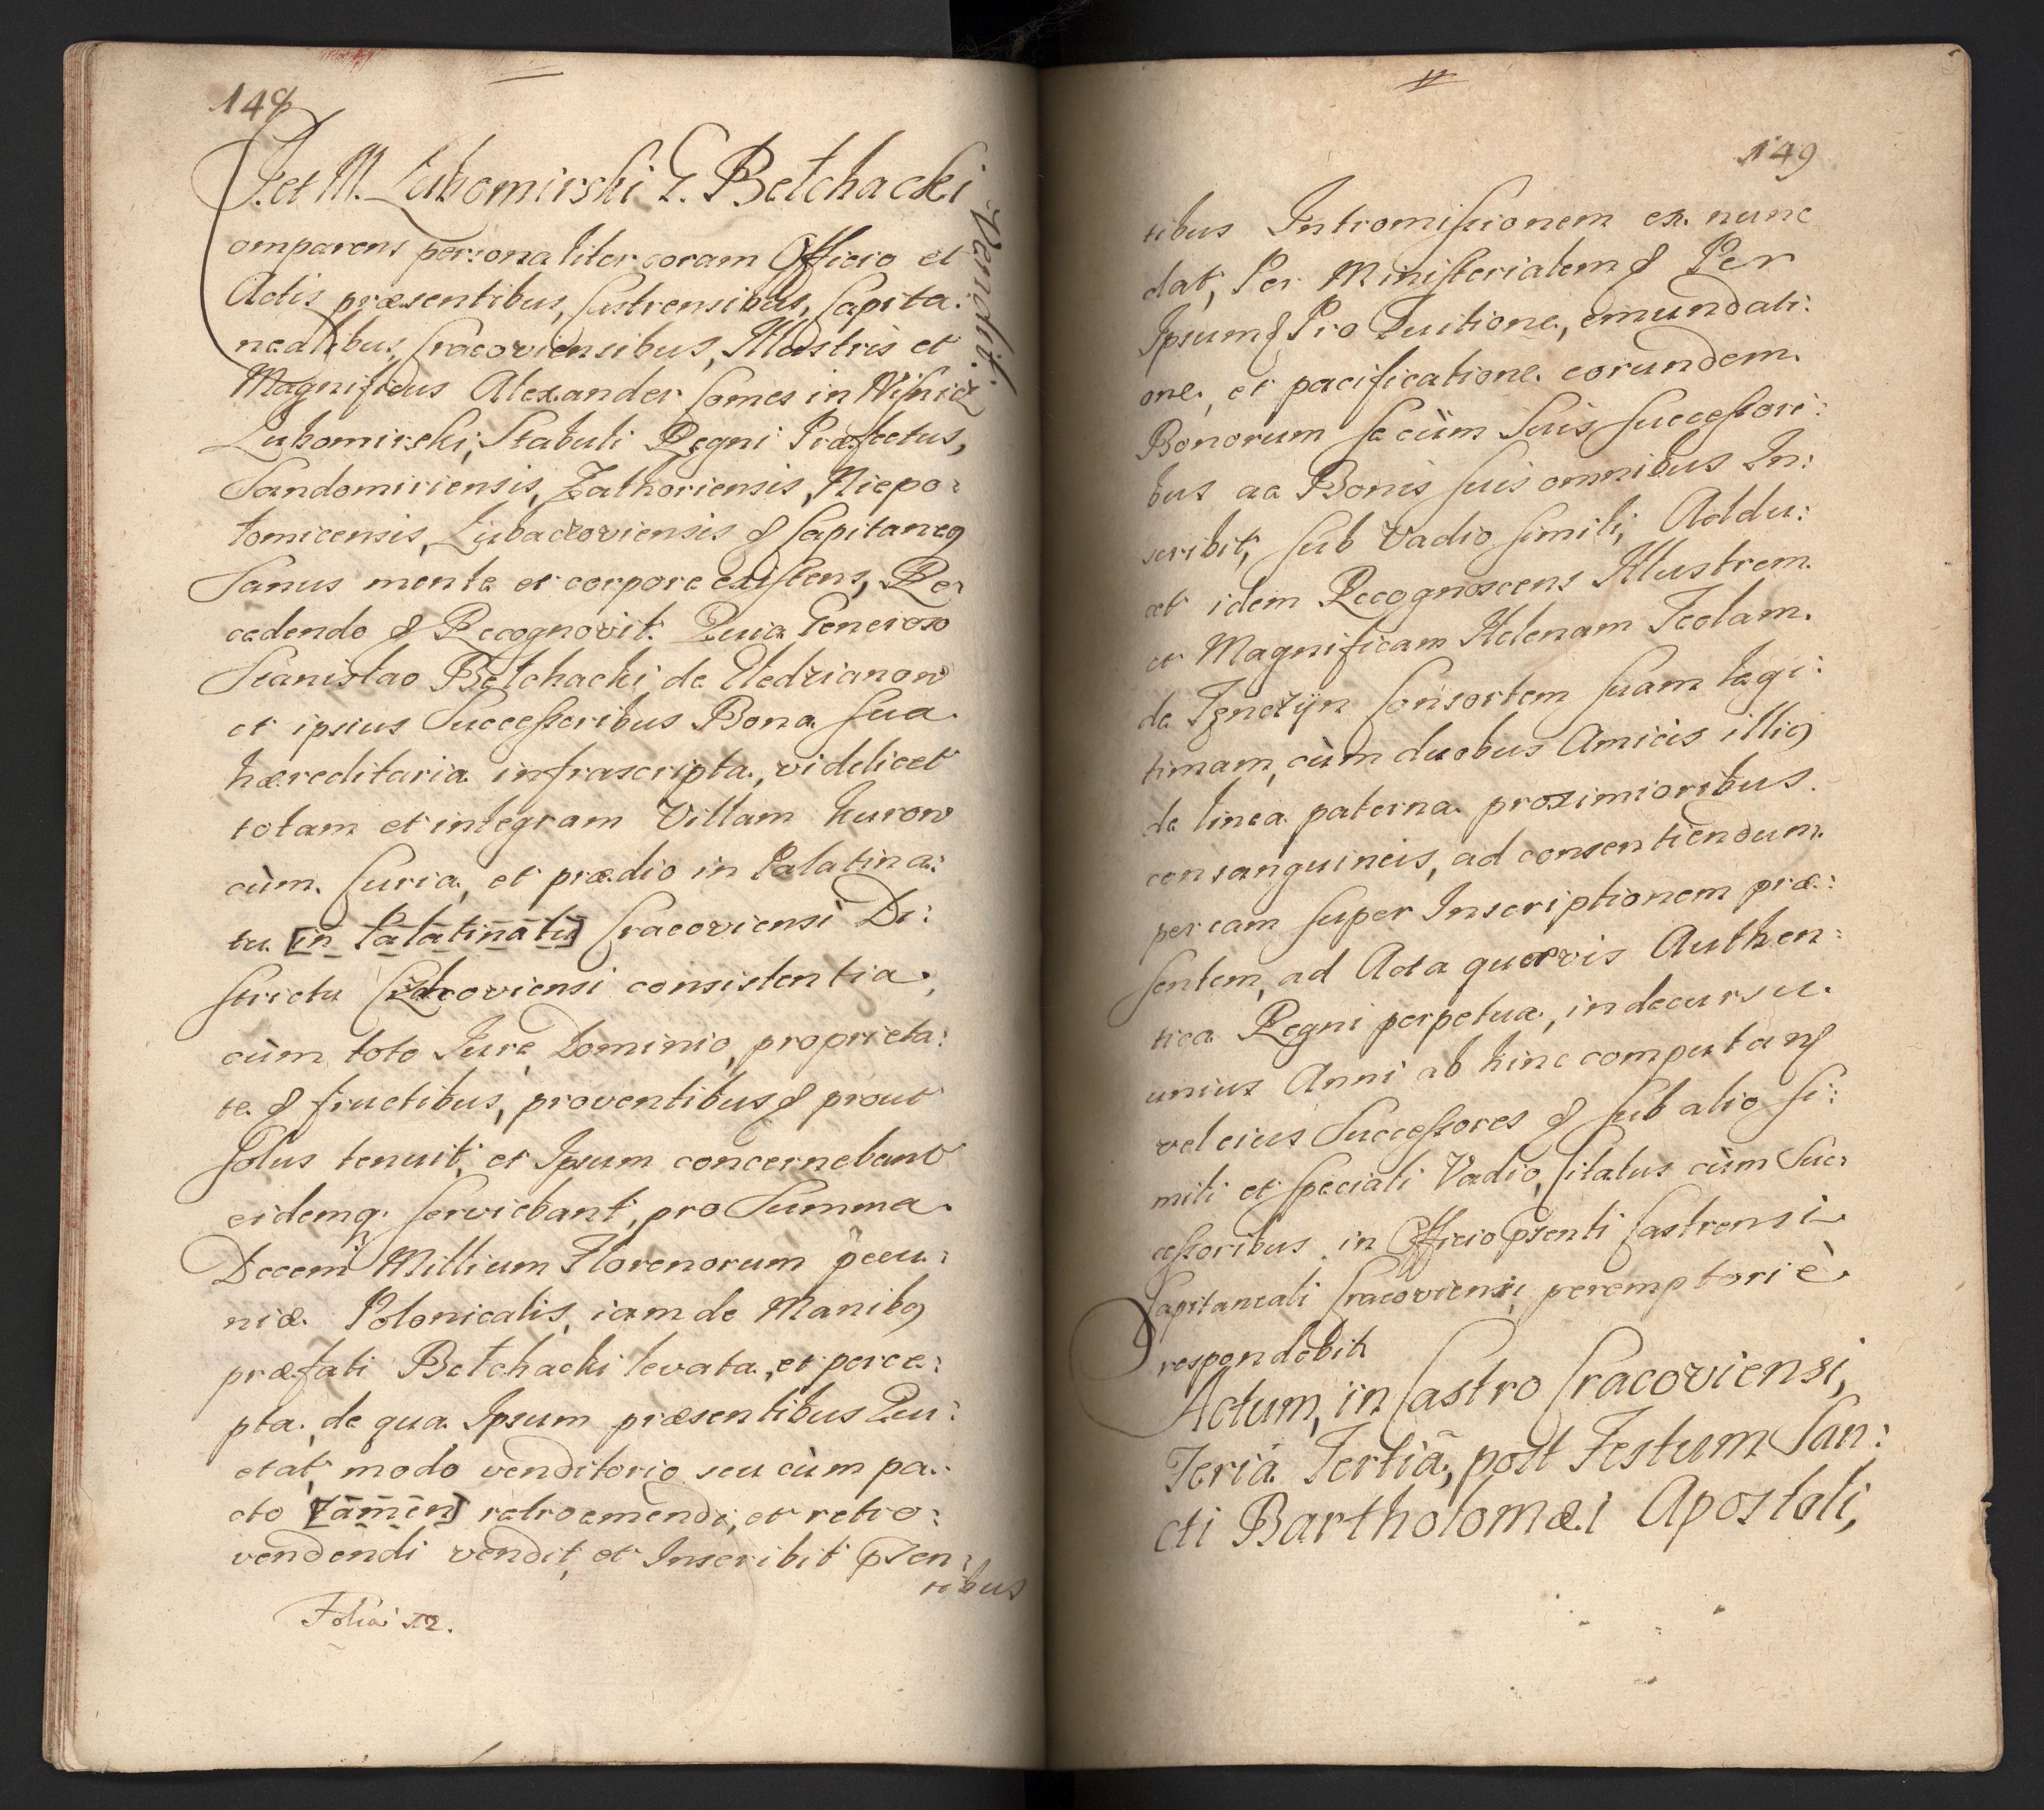 148
I. et M. Lubomirski G. Bełchacki
Vendit.
Comparens personaliter coram Officio et
Actis præsentibus, Castrensibus, Capita:
nealibus, Cracoviensibus, Illustris et
Magnificus Alexander Comes in Wiśnicz
Lubomirski, Stabuli Regni Præfectus,
Sandomiriensis, Zathoriensis, Niepo:
łomicensis, Lubaczoviensis & Capitaneq
Sanus mente et corpore existens, Re:
cedendo & Recognovit. Quia Generoso
Stanislao Bełchacki de
et ipsius Successoribus Bona sua
hæreditaria infrascripta, videlicet
totam et integram Villam Kurow
cùm Curia, et prædio in Palatina:
tu [in Palatinatu] Cracoviensi Di:
strictu consistentia,
cùm toto Iure, Dominio, proprieta:
te & fructibus, proventibus & prout
Solus tenuit, et Ipsum concernebant
eidemq. serviebant, pro Summa
Decem Millium Florenorum pecu:
niæ Polonicalis, iam de Manibq
præfati Bełchacki levata, et perce:
pta, de qua Ipsum præsentibus Qui:
etat, modo venditorio seu cùm pa:
cto [tamen] retroemendi, et retro:
vendendi vendit, et Inscribit pſen:
tibus
Folia 12.
149
tibus Intromissionem ex nunc
dat, Per Ministerialem & Per
Ipsum & Pro Tuitione, emundati:
one, et pacificatione eorundem
Bonorum se cùm Suis successori:
bus ac Bonis suis omnibus In:
scribit, sub Vadio simili, Addu:
cet idem Recognoscens Illustrem
et Magnificam Helenam Teclam
de Tęnczÿn Consortem suam legi:
timam, cùm duobus Amicis illiq
de linea paterna proximioribus
consanguineis, ad consentiendum
per eam super Inscriptionem præ:
sentem, ad Acta quævis Authen:
tica Regni perpetua, in decursu
unius Anni ab hinc computan&
vel eius Successores & sub alio si:
mili et speciali Vadio, Citatus cùm Suc:
cessoribus in Officio pſenti Castrensi
Capitaneali Cracoviensi, peremptoriè
respondebit.
Actum, in Castro Cracoviensi,
Feriâ Tertiâ, post Festum San:
cti Bartholomæi Apostoli,